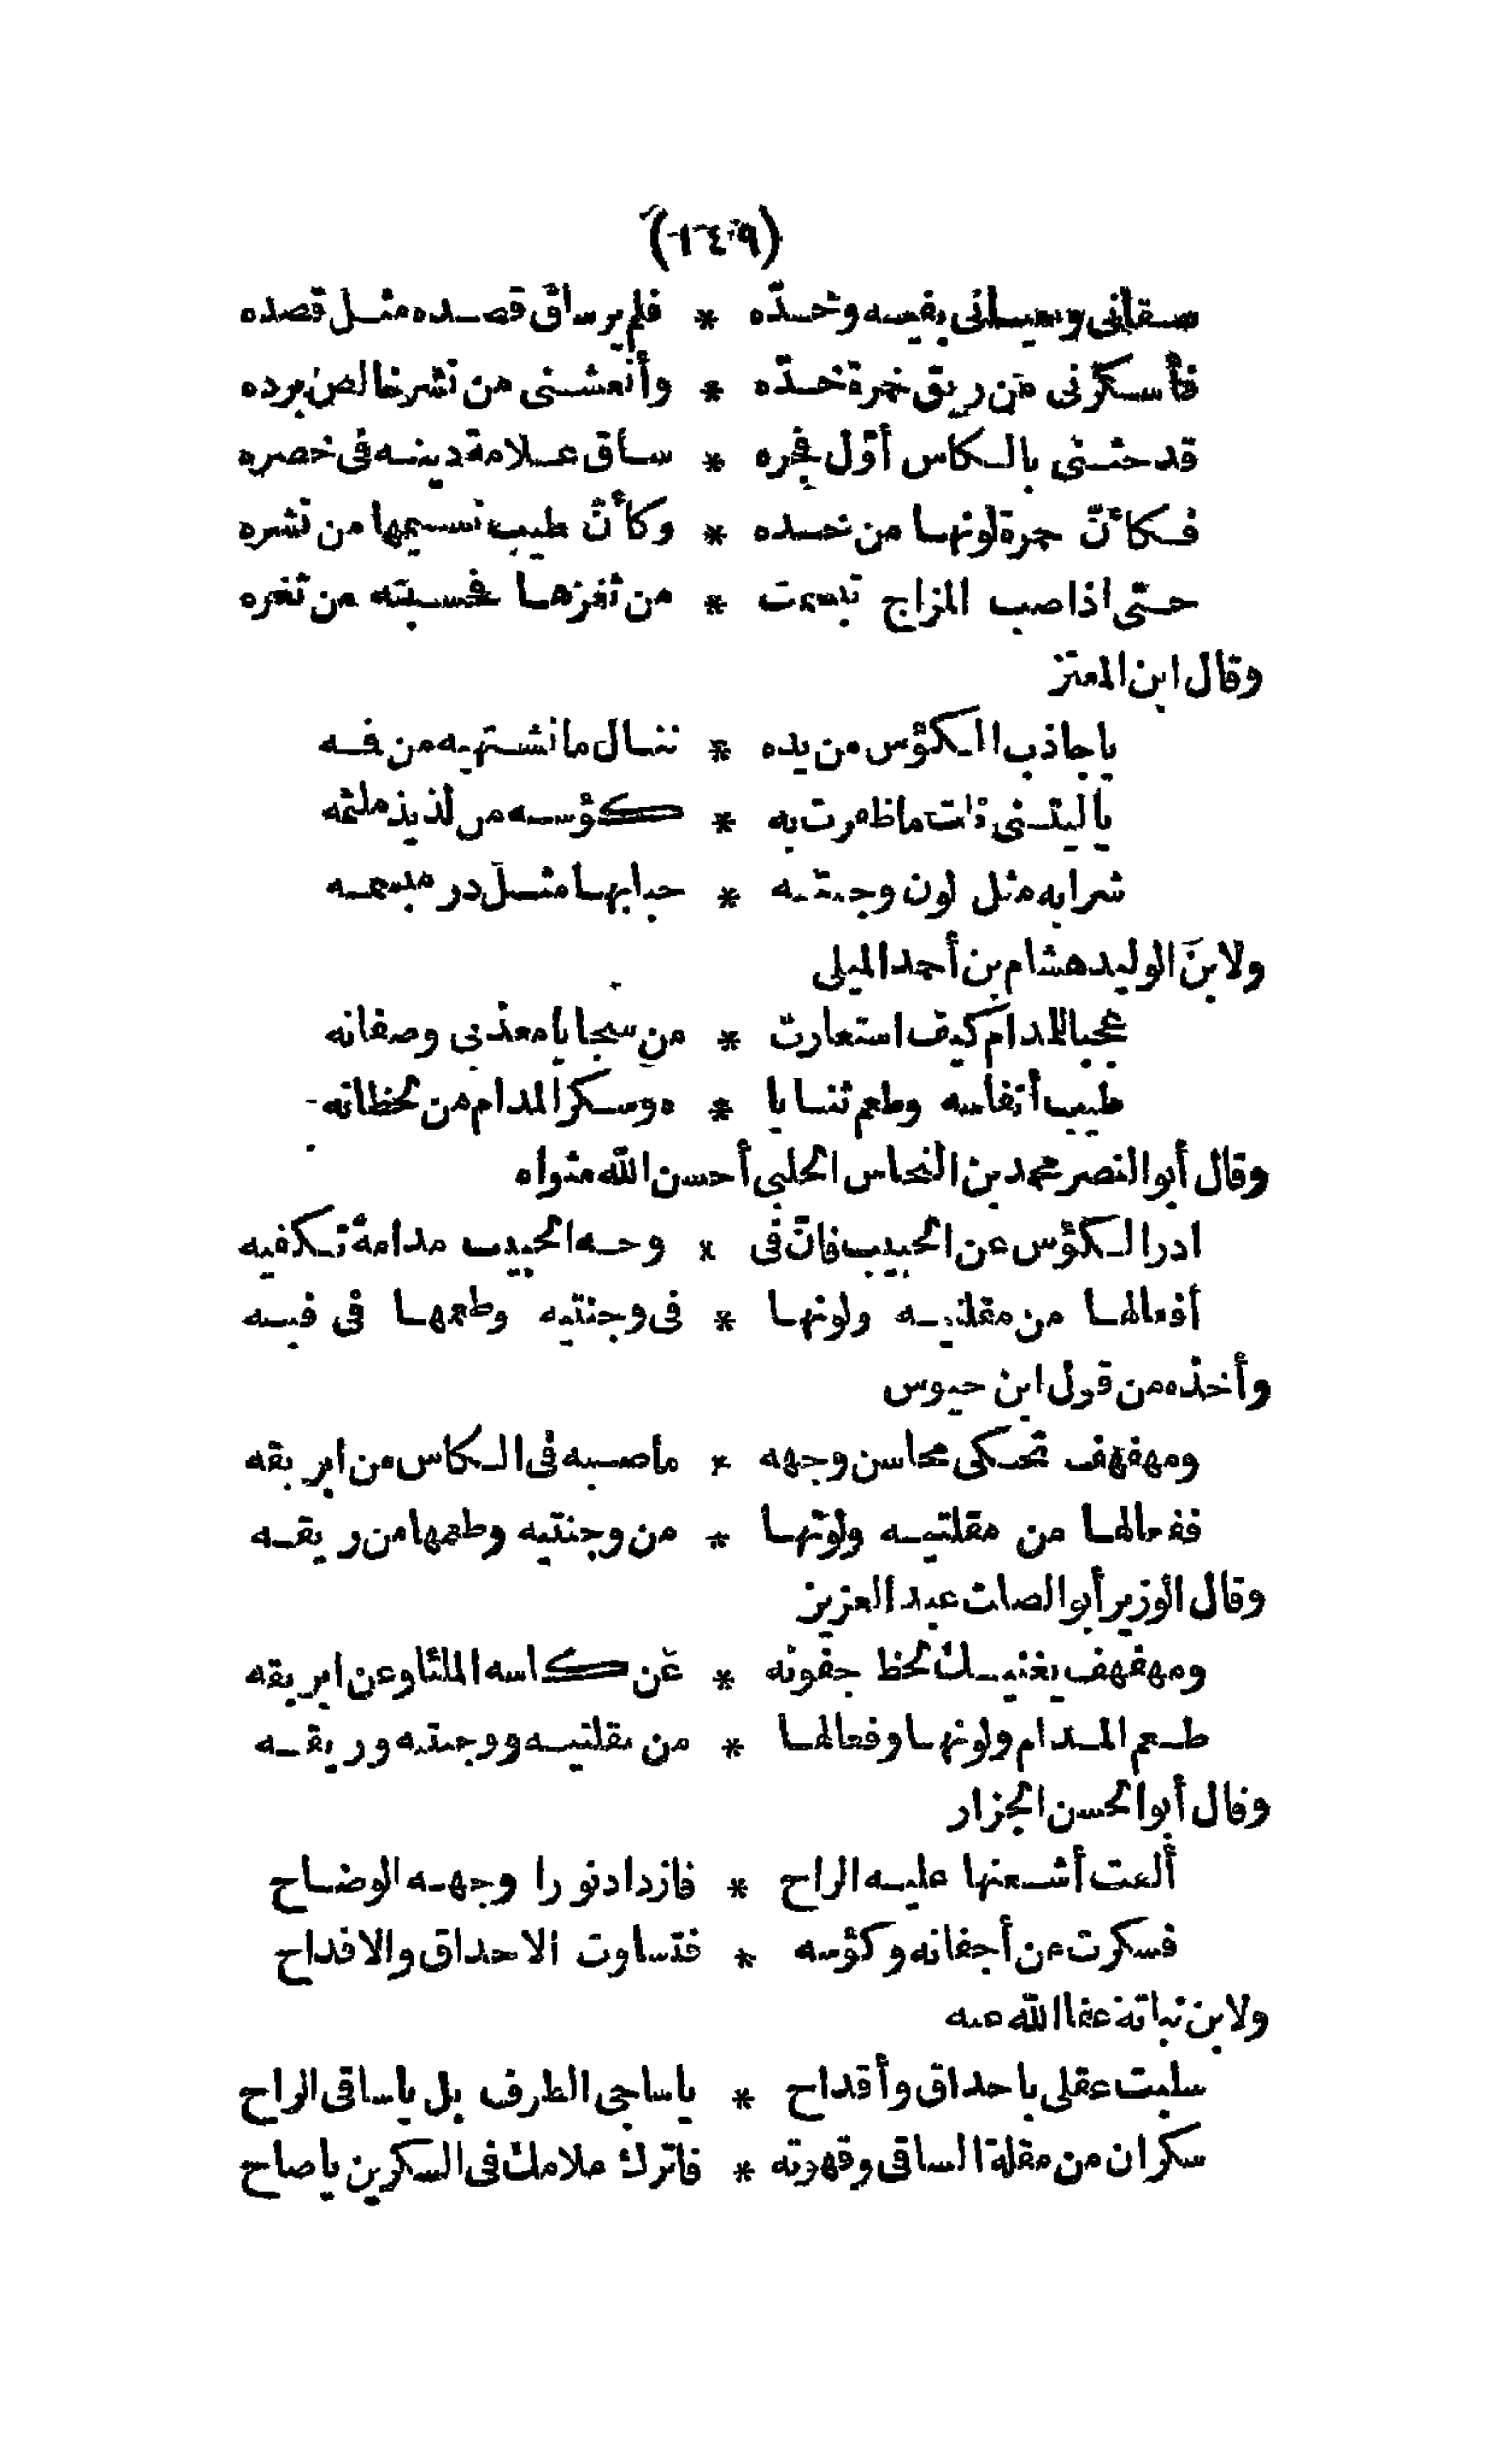 (١٤٩)
سقاني وحياني بفيه وخدّه * فلم ير ساق قصده مثل قصده
فأسكرني من ريق خمرة خدّه * وأنعشني من نشر خالص برده
قد حثني بالكاس أوّل فجره * ساق علامة دينه في خصره
فكأنّ حمرة لونها من خده * وكأنّ طيب نسيمها من نشره
حتى اذا صب المزاج تبسمت * من ثغرها فحسبته من ثغره
وقال ابن المعتز
يا جاذب الكؤس من يده * ننال ما نشتهيه من فمه
يا ليتني ذات ما ظفرت به * كؤسه من لذيذ ملثمه
شرابه مثل لون وجنتيه * حبابها مثل در مبسمه
ولابن الوليد هشام بن أحمد الميلى
عجبا للمدام كيف استعارت * من سجايا معذبي وصفاته
طيب أنفاسه وطعم ثنايا * ه وسكر المدام من لحظاته
وقال أبو النصر محمد بن النحاس الحلبي أحسن الله مثواه
ادر الكؤس عن الحبيب فانّ في * وجه الحبيب مدامة تكفيه
أفعالها من مقلتيه ولونها * في وجنتيه وطعمها في فيه
وأخذه من قول ابن حيوس
ومهفهف تحكى محاسن وجهه * ما صبه في الكاس من ابريقه
ففعالها من مقلتيه ولونها * من وجنتيه وطعمها من ريقه
وقال الوزير أبو الصلت عبد العزيز
ومهفهف يغنيك لحظ جفونه * عن كاسه الملئا وعن ابريقه
طعم المدام ولونها وفعالها * من مقلتيه ووجنتيه وريقه
وقال أبو الحسن الجزار
ألقت أشعتها عليه الراح * فازداد نورا وجهه الوضاح
فسكرت من أجفانه وكؤسه * فتساوت الاحداق والاقداح
ولابن نباتة عفا الله عنه
سلبت عقلى باحداق وأقداح * يا ساجى الطرف بل يا ساقى الراح
سكران من مقلة الساقى وقهوته * فاترك ملامك في السكرين يا صاح